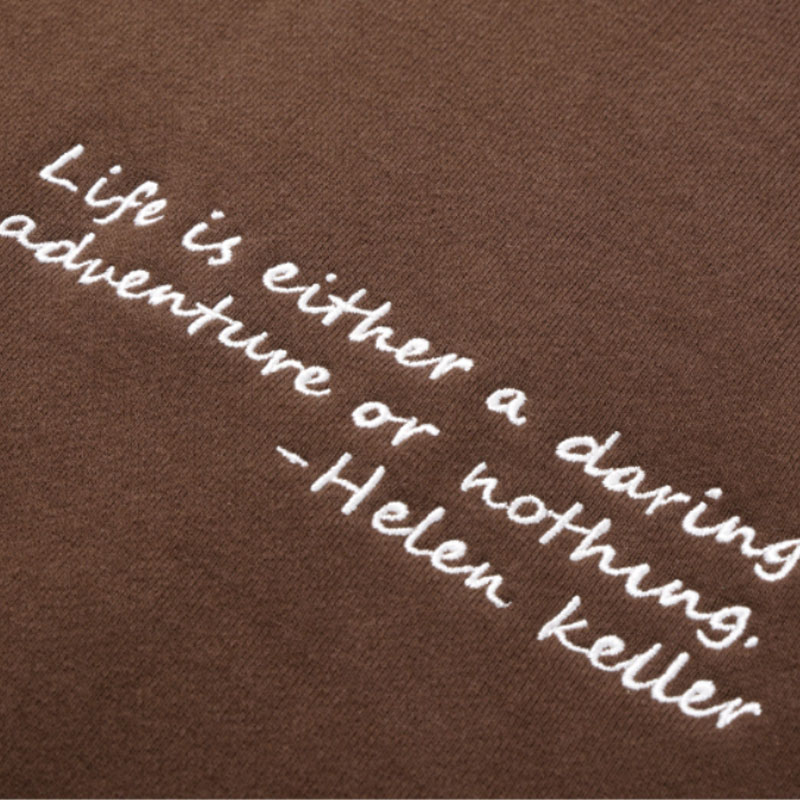 Life is either a daring
adventure or nothing.
-Helen Keller